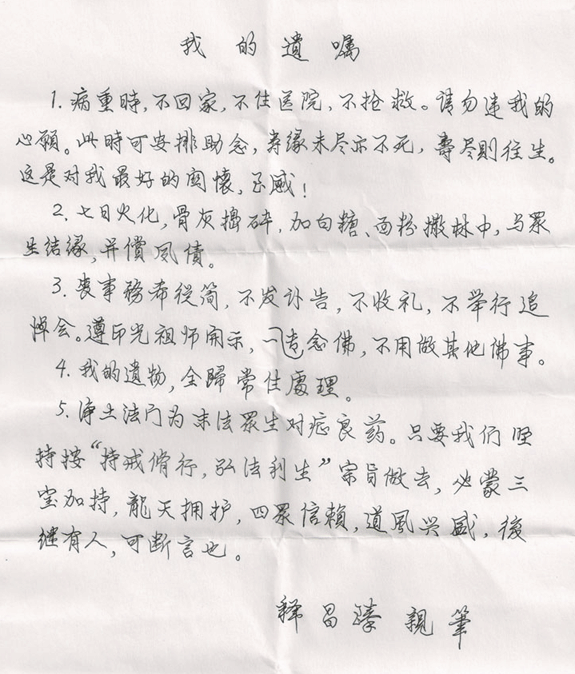 我的遺嘱
1.病重時,不回家,不住医院,不抢救。请勿违我的
心願。此時可安排助念,寿缘未尽亦不死,壽尽則往生。
这是对我最好的関懷,至感!
2.七日火化,骨灰搗碎,加白糖、面粉撒林中,与眾
生结缘,并償夙债。
3.喪事務希從简,不发讣告,不收礼,不举行追
悼会。遵印光祖师開示,一专念佛,不用做其他佛事。
4.我的遺物,全歸常住處理。
5.净土法门为末法眾生对症良药。只要我们坚
持按“持戒脩行,弘法利生”宗旨做去,必蒙三
宝加持,龍天拥护,四眾信賴,道風兴盛,後
继有人,可断言也。
释昌臻親筆